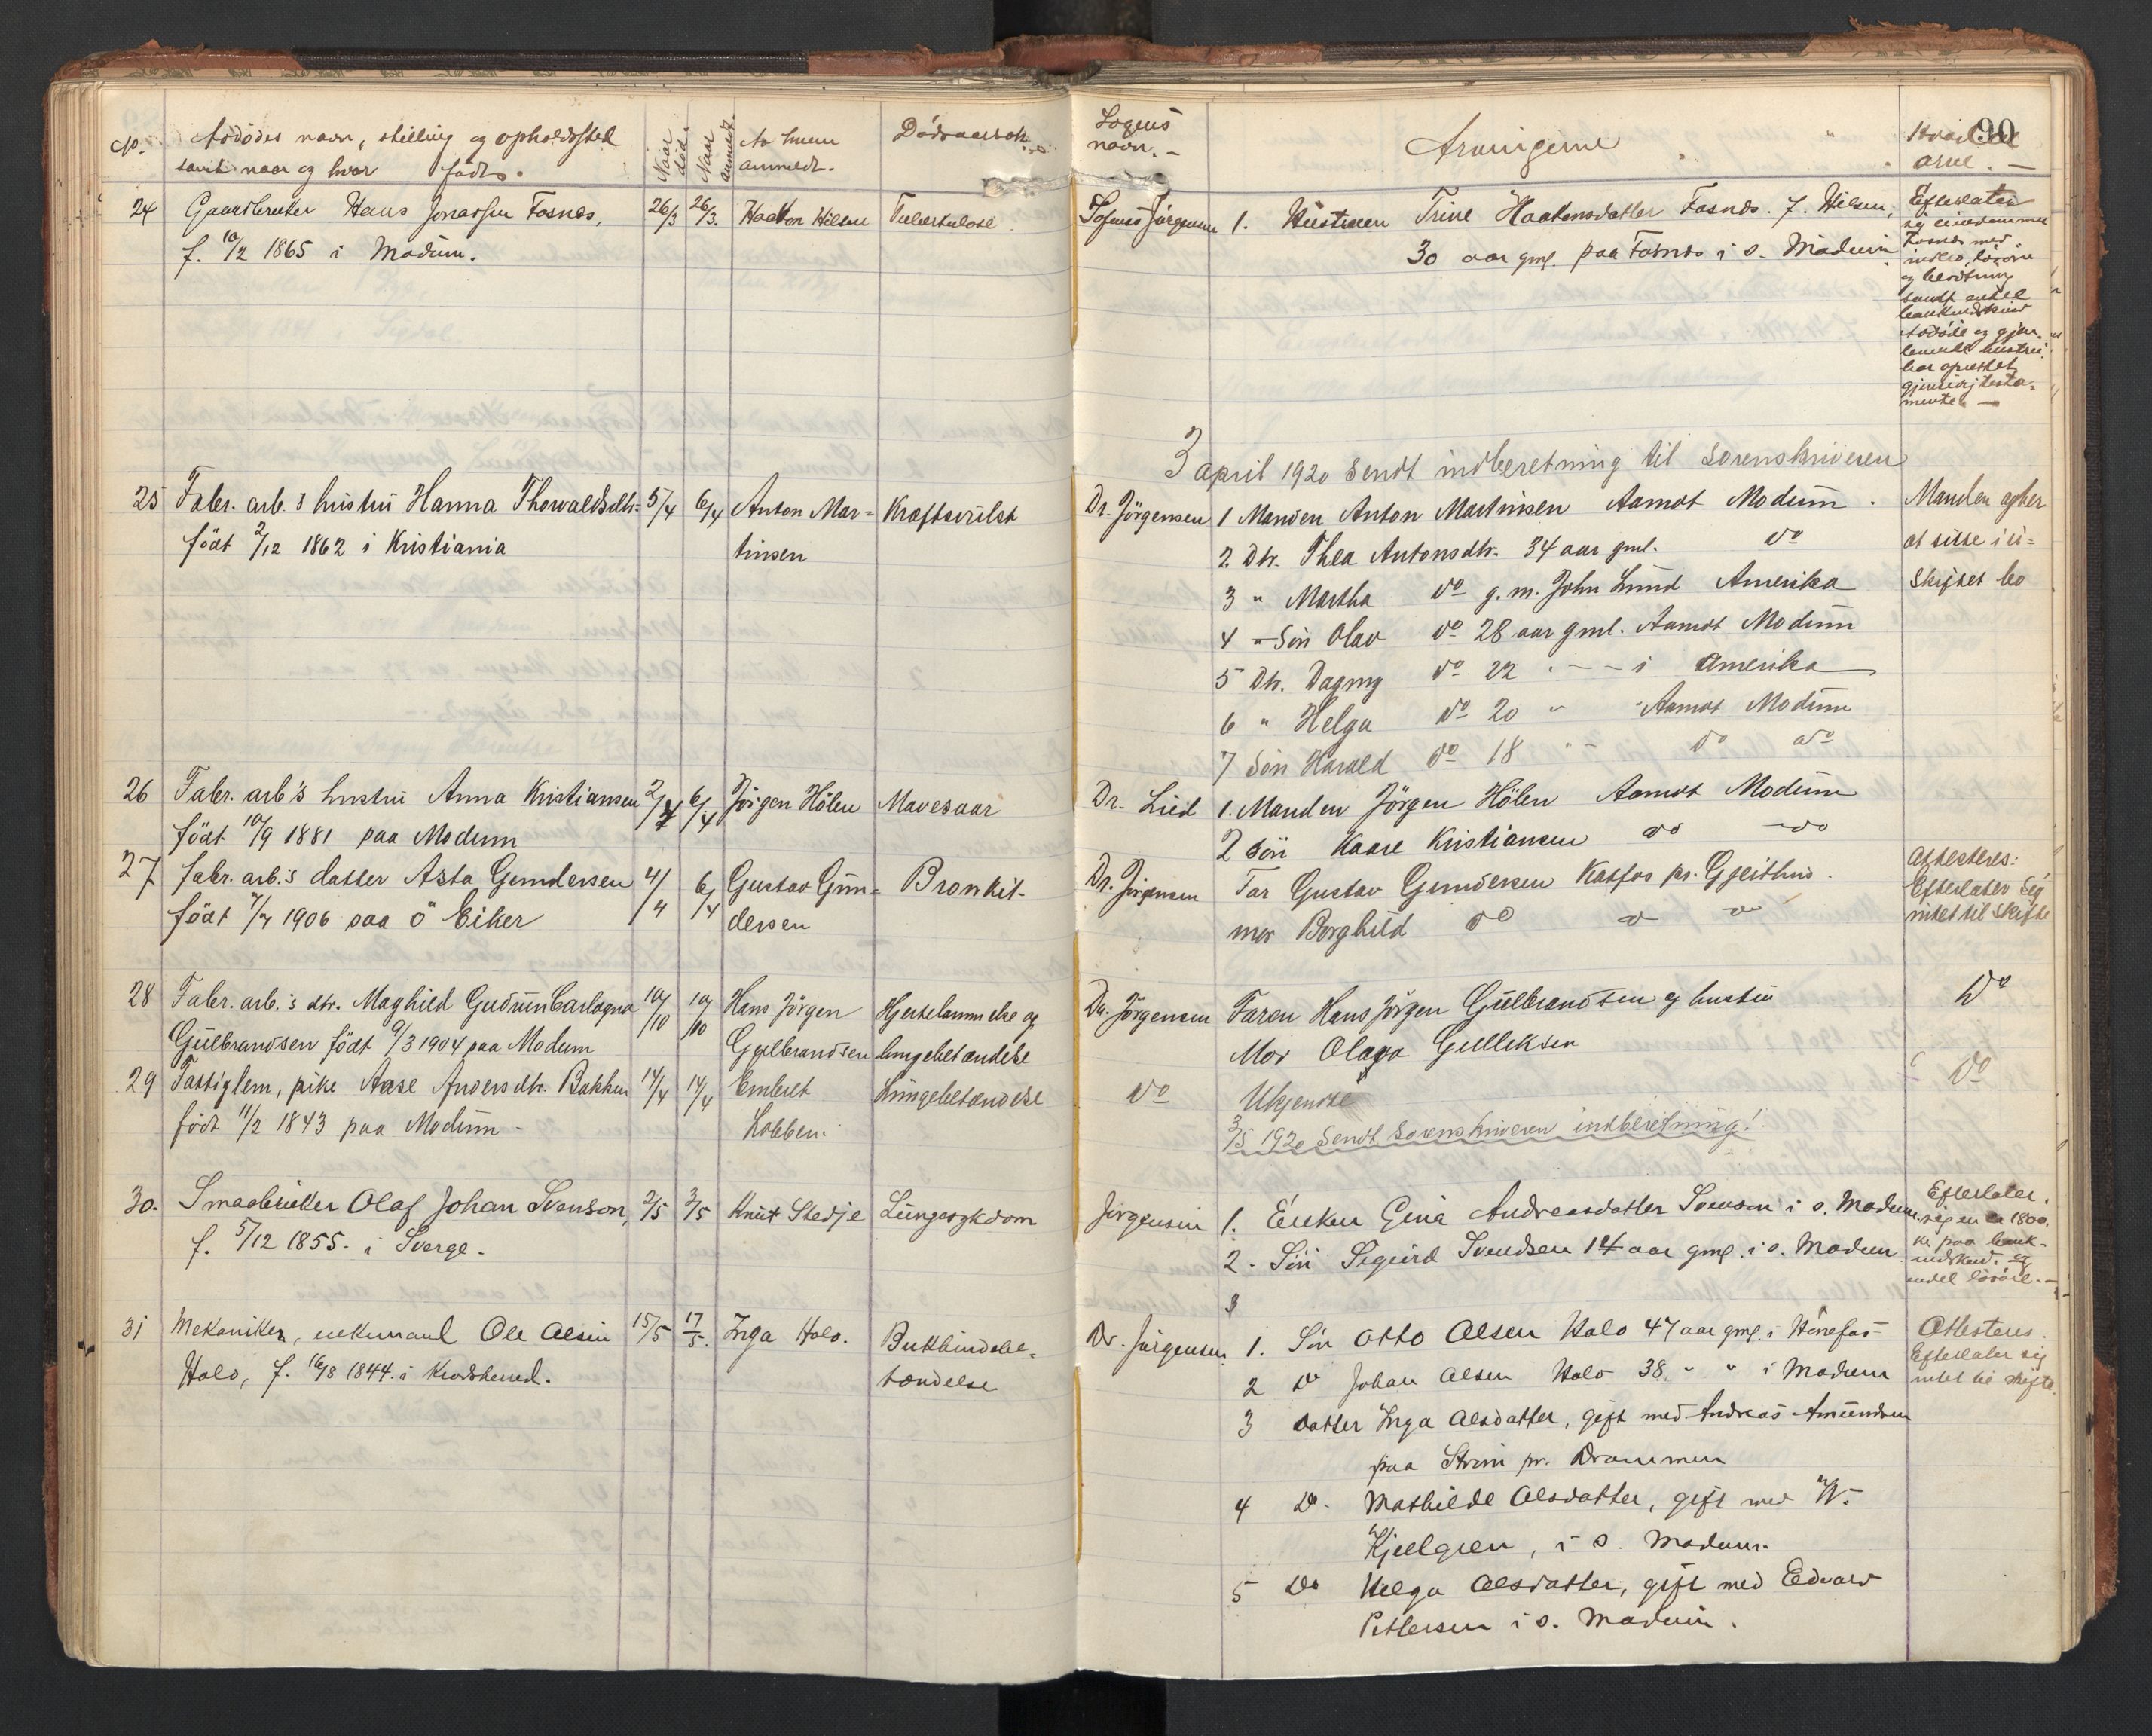 No. Afdödes navn, stilling og opholdssted samt naar og hvor födt.
Naar död
Naar anmeldt
Av hvem anmeldt.
Dödsaarsak
Lægens navn. -
Arvingerne
90
arve. -
24 Gaardbruker Hans Jonassen Fosnes, 26/3 26/3. Haakon Hilsen Tuberkulose
f. 10/2 1865 i Modum.
Jörgensen 1. Hustruen Trine Haakonsdatter Fosnes. f. Hilsen,
30 aar gml. paa Fosnes i s. Modum
Efterlater
sig eiendommen
Fosnes med
indbo, lösöre
og besætning
samt endel
bankindskud
Avdöde og gjen-
levende hustru
har oprettet
gjensidig testa-
mente. -
3 april 1920 Sendt indberetning til Sorenskriveren
25 Fabr. arb.'s hustru Hanna Thorvaldsdtr. 5/4 6/4 Anton Mar= Kræftsvulst
födt 2/12 1862 i Kristiania tinsen
Dr. Jörgensen 1 Manden Anton Martinsen Aamot Modum. Manden agter
2 Dtr. Thea Antonsdtr. 34 aar gml. do at sitte i u=
3 " Martha do g. m. John Lund Amerika skiftet bo
4 - Sön Olav do 28 aar gml. Aamot Modum
5 Dtr. Dagny do 22 " - - i Amerika
6 " Helga do 20 " " Aamot Modum
7 Sön Harald do 18 " " do do
26 Fabr. arb's hustru Anna Kristiansen 2/4 6/4 Jörgen Hölen Mavesaar
födt 10/9 1881 paa Modum
Dr. Lied 1. Manden Jörgen Hölen Aamot Modum
2 Sön Kaare Kristiansen do - do
27 fabr. arb.'s datter Asta Gundersen 4/4 6/4 Gustav Gun= Bronkit-
födt 7/4 1906 paa ö Eiker dersen
Dr. Jörgensen Far Gustav Gundersen Katfos pr. Gjeithus.
mor Borghild do do do
Attesteres:
Efterlater sig
intet til skifte
28 Fabr. arb.'s dtr. Maghild Gudrun 10/10 10/10 Hans Jörgen Hjertelammelse og
Gulbrandsen födt 9/3 1904 paa Modum Gulbrandsen lungebetændelse
Dr. Jörgensen Faren Hans Jörgen Gulbrandsen og hustru do
Mor Olaga Gulleksen
29 Fattiglem, pike Aase Andersdtr. Bakken 14/4 14/4 Embret Lungebetændelse
födt 11/2 1843 paa Modum - Kobben.
do Ukjendte do
3/5 1920 Sendt Sorenskriveren indberetning!
30. Smaabruker Olaf Johan Svenson, 2/5 3/5 Knut Stedje Lungesykdom
f. 5/12 1855. i Sverge.
Jörgensen 1. Enken Gina Andreasdatter Svenson i s. Modum
2. Sön Sigurd Svendsen 14 aar gml. i s. Modum
3
Efterlater
sig en ca 1800.
kr paa bank-
indskud. og
endel lösöre. -
31 Mekaniker, enkemand Ole Olsen 15/5 17/5. Inga Holo. Bukhindebe-
Holo, f. 16/8 1844. i Krödsherred. tændelse
Dr. Jörgensen 1. Sön Otto Olsen Holo 47 aar gml. i Hönefos
2 do Johan Olsen Holo 38. " " i Modum
3 datter Inga Olsdatter, gift med Andreas Amundsen
paa Ström pr. Drammen
4 Do. Mathilde Olsdatter, gift med W.
Kjellgren, i s. Modum.
5 Do Helga Olsdatter, gift med Edvard
Pettersen i s. Modum.
Attesteres.
Efterlater sig
intet til skifte.